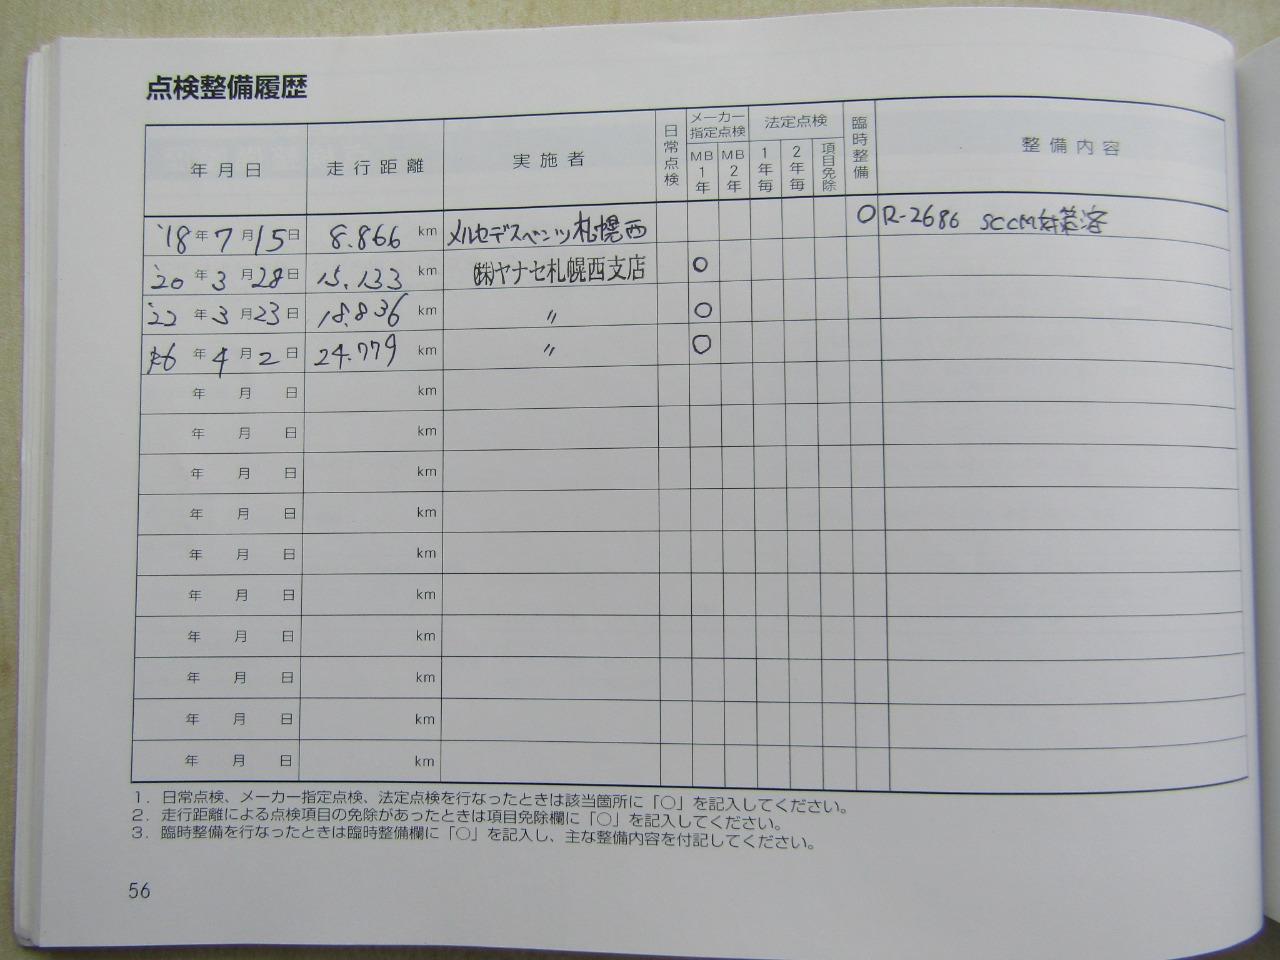 点検整備履歴
年月日 走行距離 実施者 日常点検 メーカー指定点検 MB1年 MB2年 法定点検 1年毎 2年毎 項目免除 臨時整備 整備内容
'18年7月15日 8.866 km メルセデスベンツ札幌西 ○ R-2686 SCCM
'20年3月28日 15.133 km ㈱ヤナセ札幌西支店 ○
'22年3月23日 18.836 km 〃 ○
年4月2日 24.779 km 〃 ○
年 月 日 km
年 月 日 km
年 月 日 km
年 月 日 km
年 月 日 km
年 月 日 km
年 月 日 km
年 月 日 km
年 月 日 km
年 月 日 km
1. 日常点検、メーカー指定点検、法定点検を行なったときは該当箇所に「○」を記入してください。
2. 走行距離による点検項目の免除があったときは項目免除欄に「○」を記入してください。
3. 臨時整備を行なったときは臨時整備欄に「○」を記入し、主な整備内容を付記してください。
56